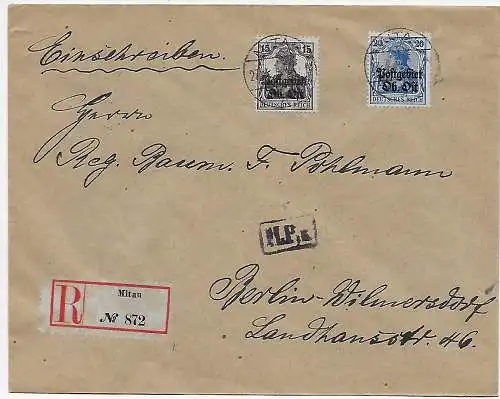 Einschreiben.
15 15
Postgebiet
Ob. Ost
DEUTSCHES REICH
20 20
Postgebiet
Ob. Ost
DEUTSCHES REICH
Herrn
Reg. Baum. F. Pohlmann
M.P.k
R
Mitau
№ 872
Berlin-Wilmersdorf
Landhausstr. 46.